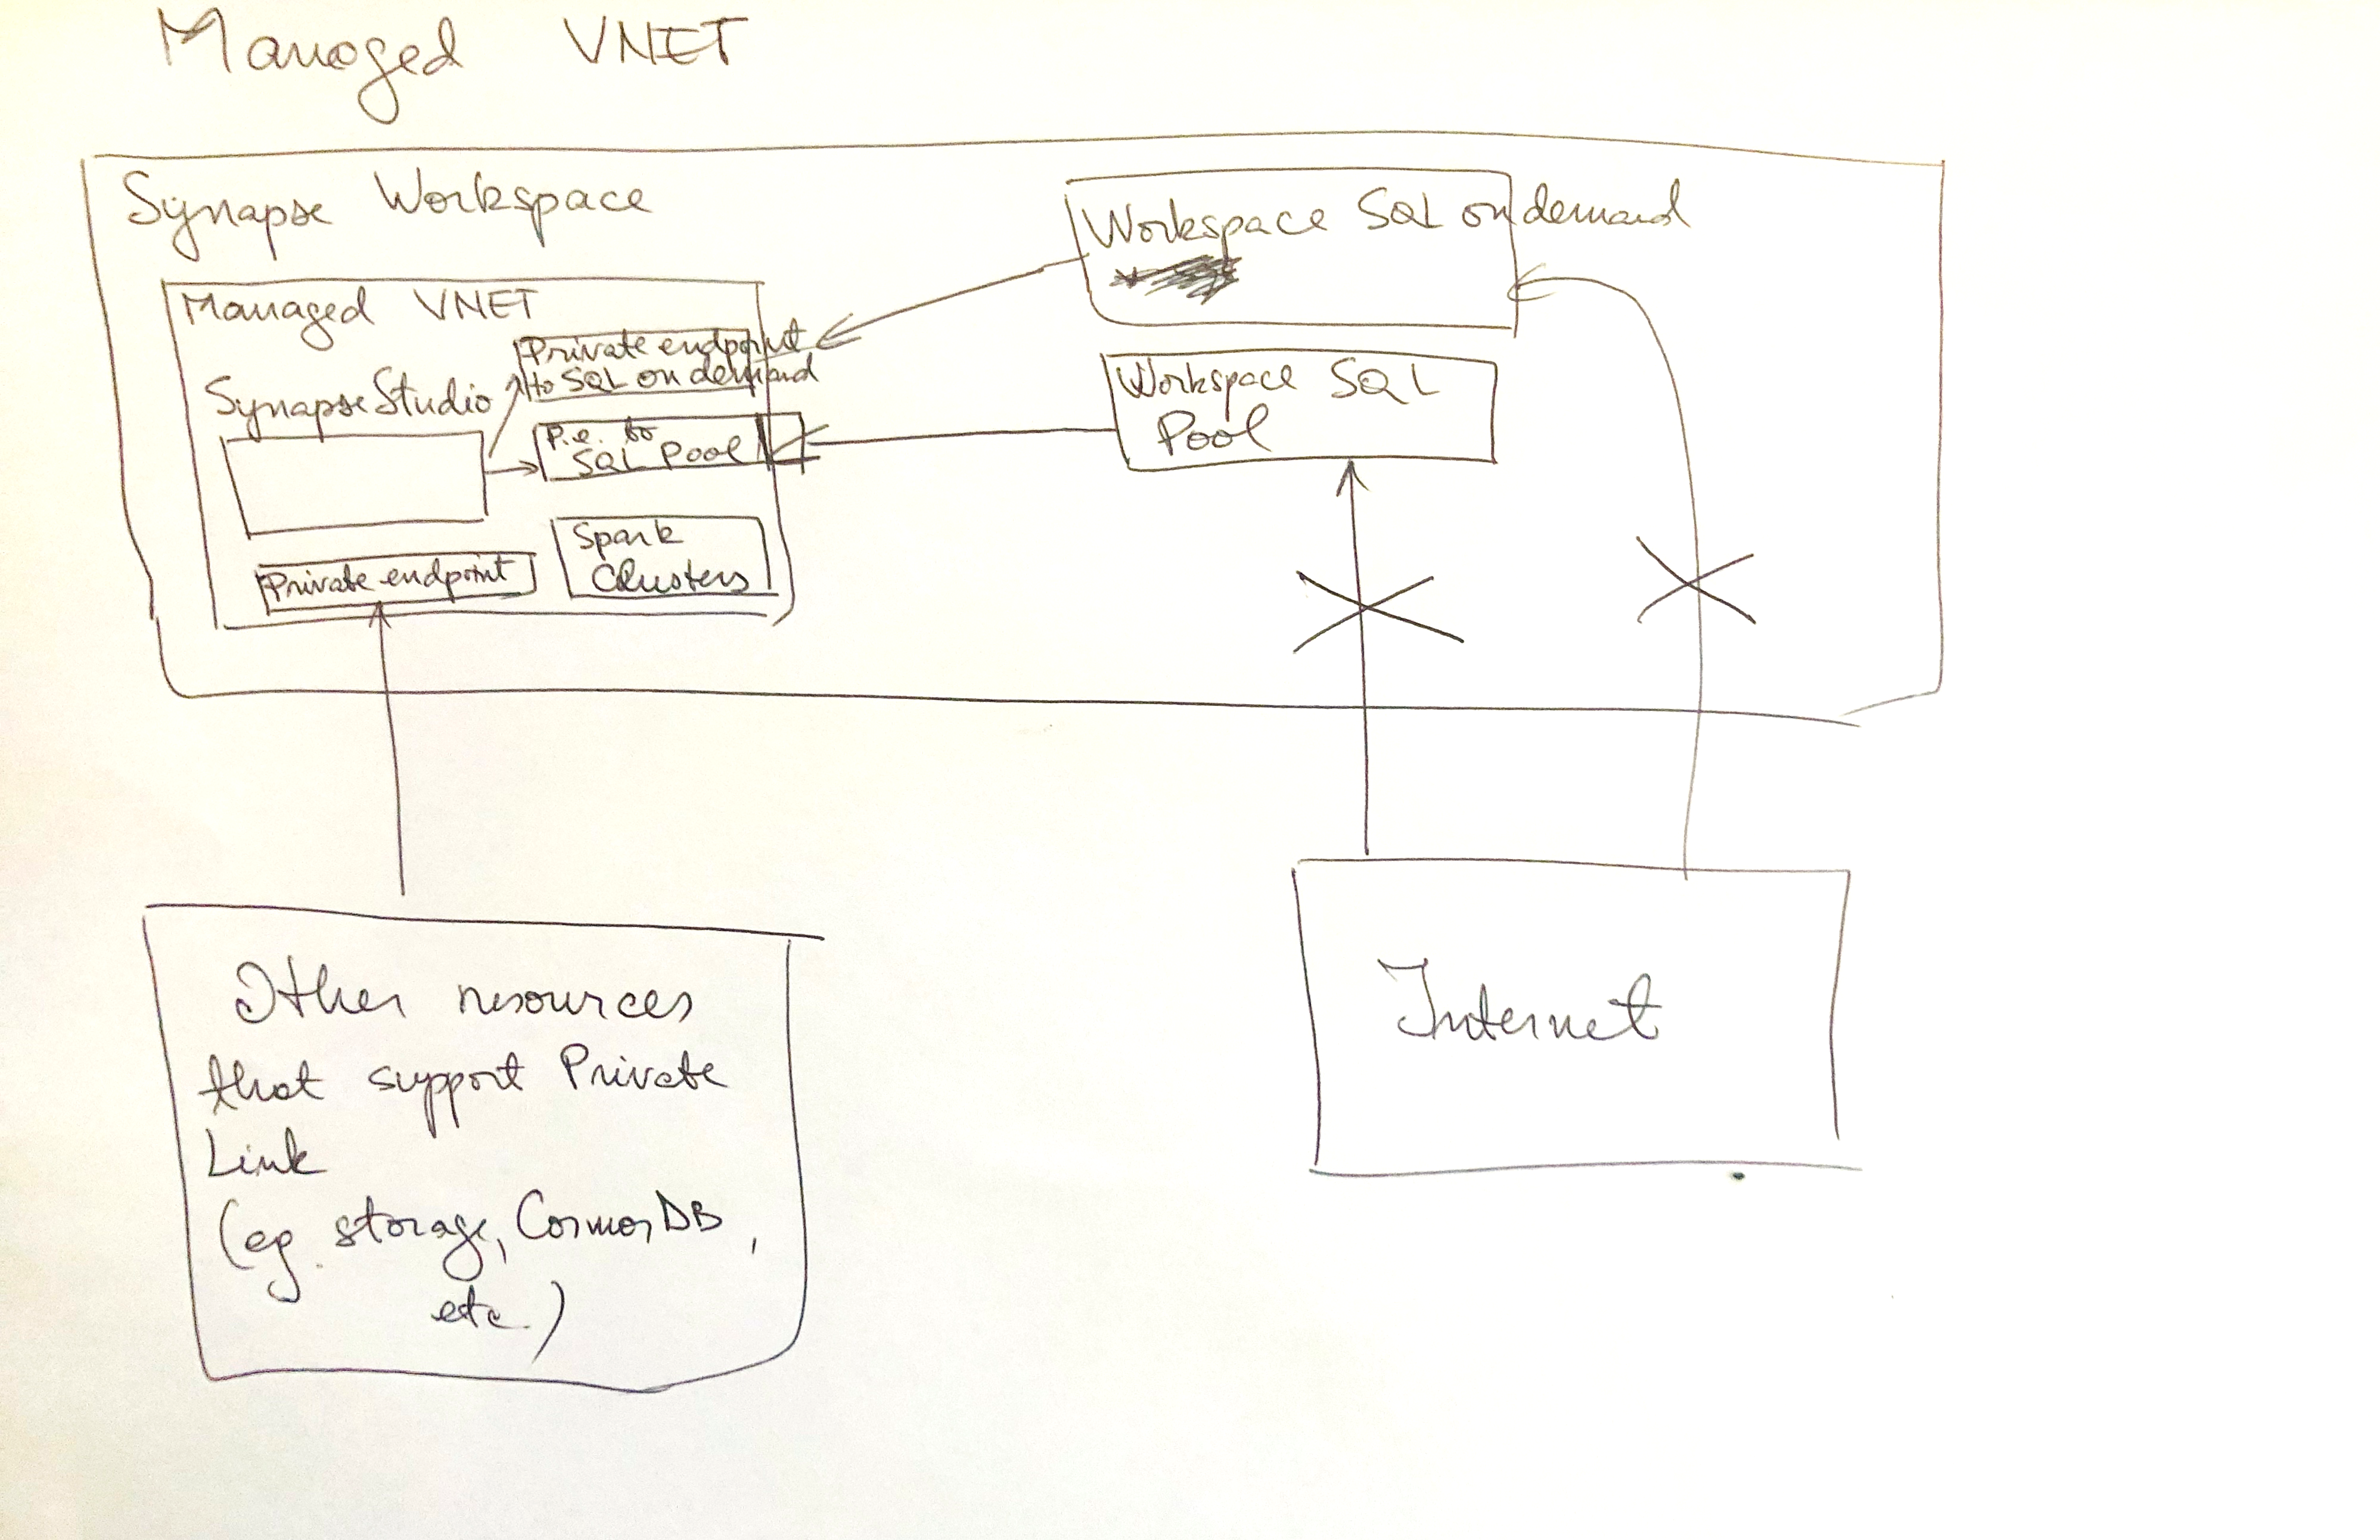 Managed VNET
Synapse Workspace
Workspace SQL on demand
Managed VNET
Private endpoint
to SQL on demand
Synapse Studio
P.e. to
SQL Pool
Workspace SQL
Pool
Spark
Clusters
Private endpoint
Other resources
that support Private
Link
(eg. storage, CosmosDB,
etc.)
Internet